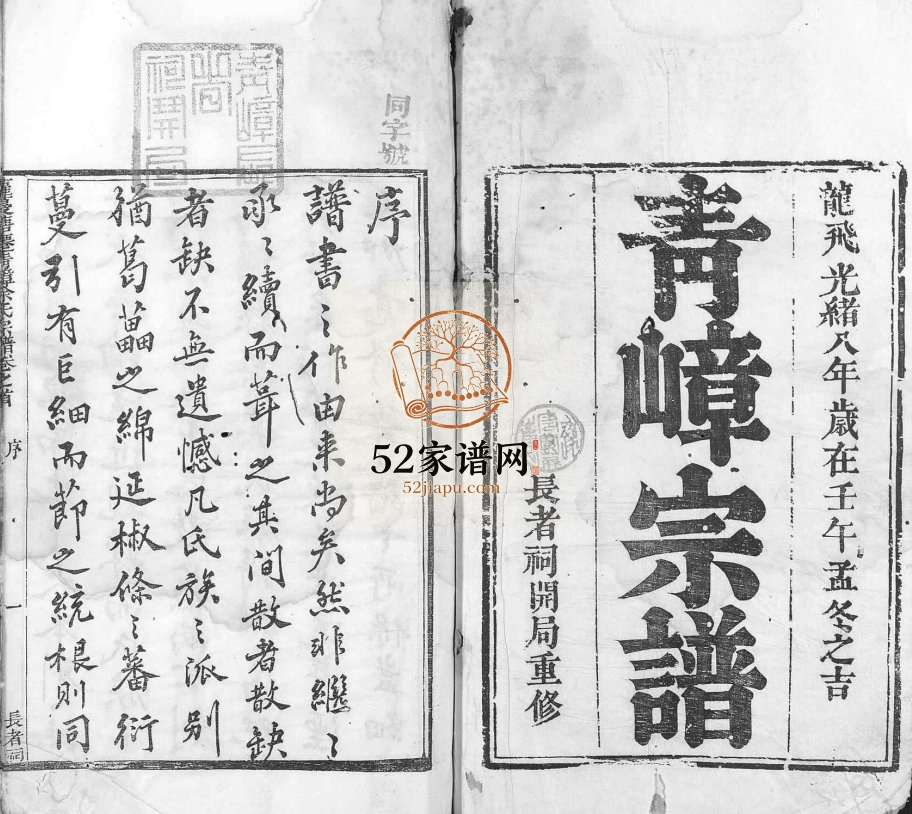 龍飛光緒八年歲在壬午孟冬之吉
青嶂宗譜
長者祠開局重修
同字號
序
譜書之作由来尚矣然非繼繼
承承續而葺之其間散者散缺
者缺不無遺憾凡氏族之派别
猶葛藟之綿延椒條之蕃衍
蔓引有巨細而節之統根則同
序
一
長者祠
52家谱网
52jiapu.com